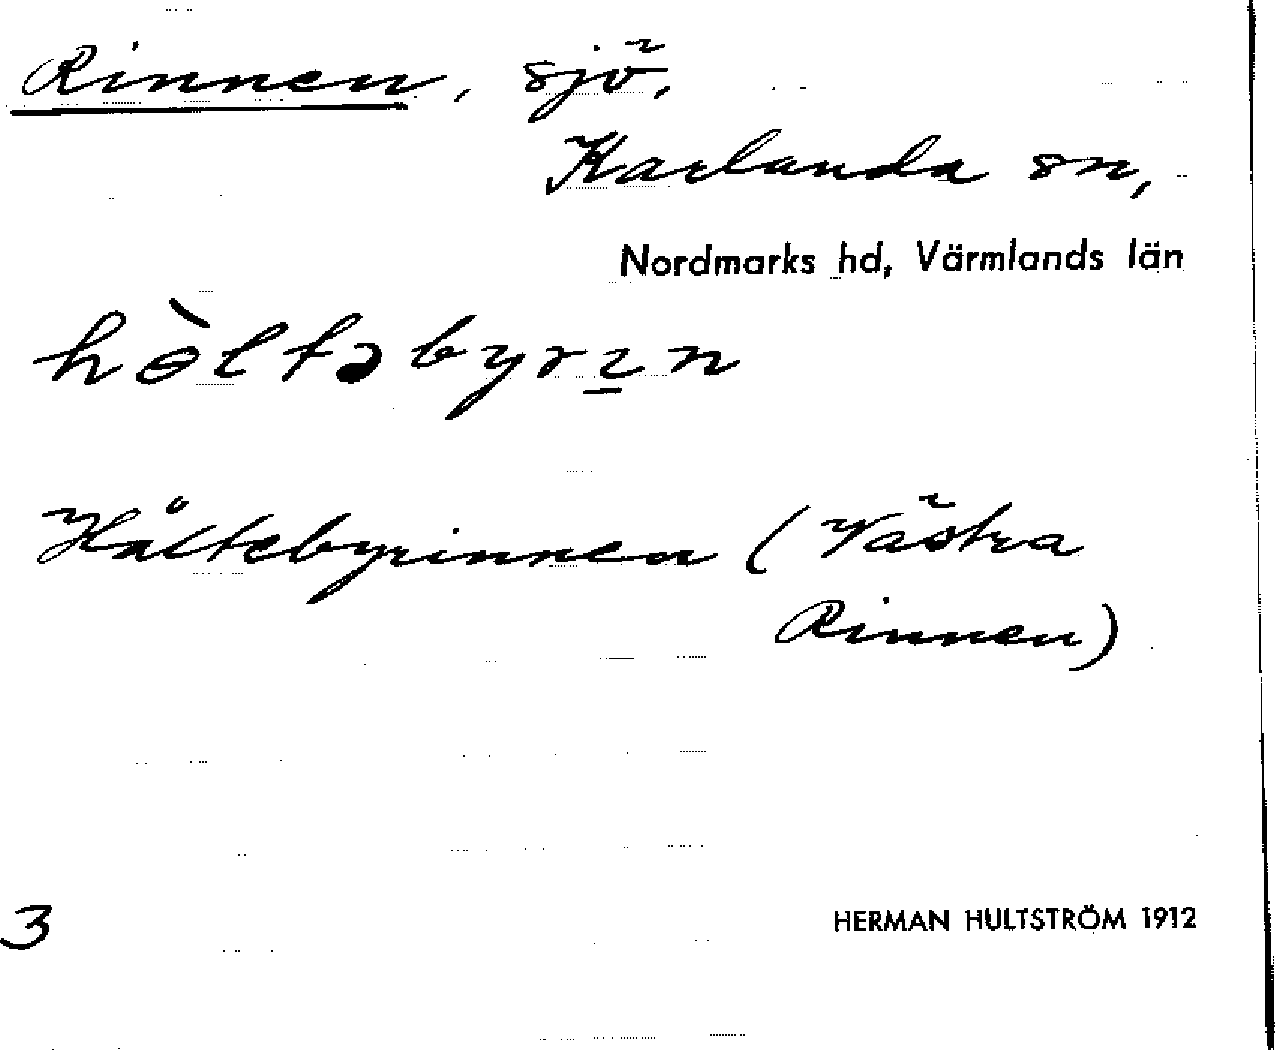 Rinnen, sjö,
Karlanda sn,
Nordmarks hd, Värmlands län
hɵ̀ltəbyrın
Håltebyrinnen (Västra
Rinnen)
3
HERMAN HULTSTRÖM 1912